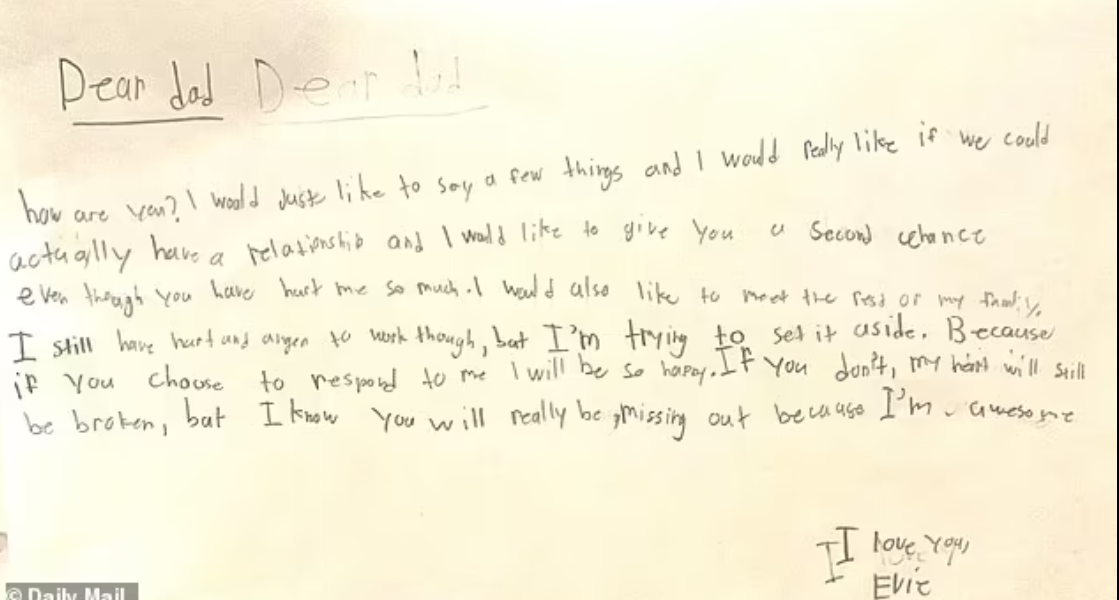 Dear dad Dear dad
how are you? I would just like to say a few things and I would really like if we could
actually have a relationship and I would like to give you a second chance
even though you have hurt me so much. I would also like to meet the rest of my family.
I still have hurt and anger to work though, but I'm trying to set it aside. Because
if you choose to respond to me I will be so happy. If you don't, my heart will still
be broken, but I know you will really be missing out because I'm awesome
I love you,
Evie
© Daily Mail